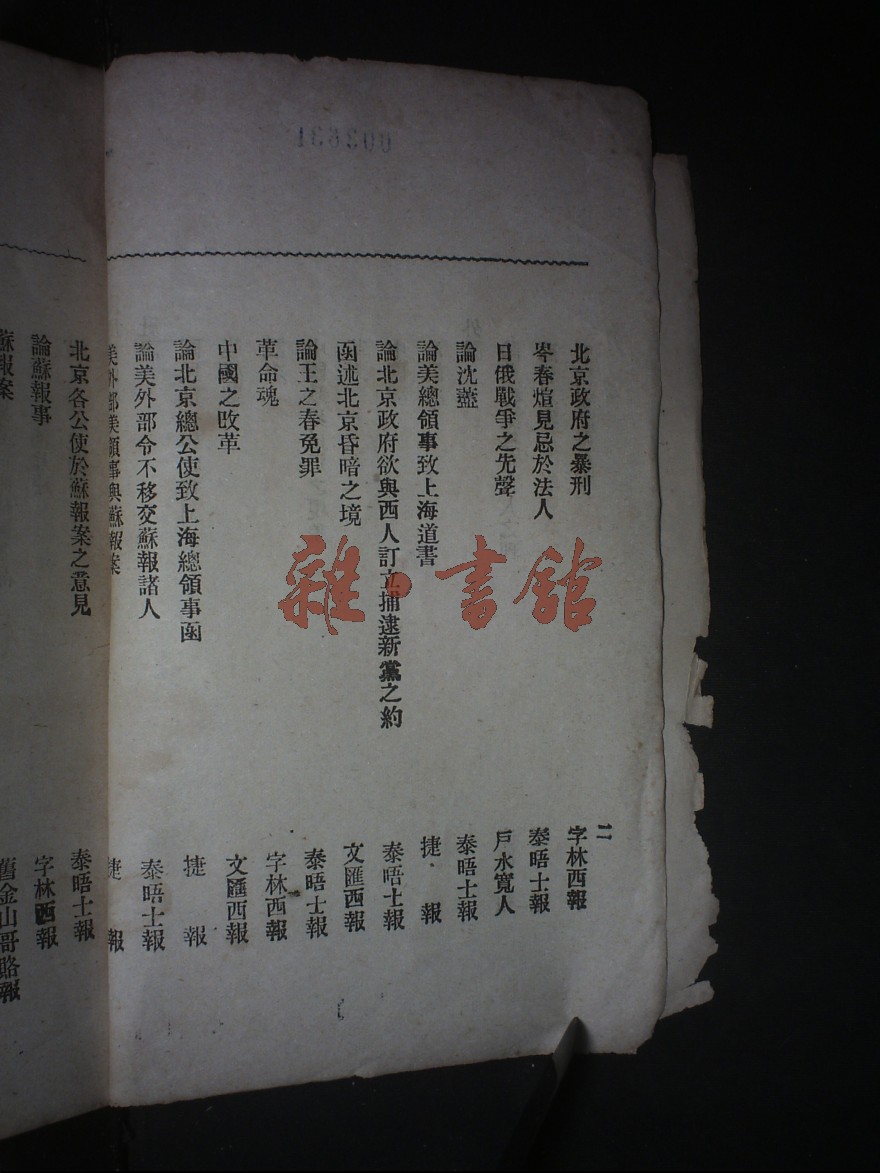 北京政府之暴刑 字林西報
岑春煊見忌於法人 泰晤士報
日俄戰爭之先聲 戶水寬人
論沈藎 泰晤士報
論美總領事致上海道書 捷報
論北京政府欲與西人訂立捕逮新黨之約 泰晤士報
函述北京昏暗之境 文匯西報
論王之春免罪 泰晤士報
革命魂 字林西報
中國之改革 文匯西報
論北京總公使致上海總領事函 捷報
論美外部令不移交蘇報諸人 泰晤士報
美外部美領事與蘇報案 捷報
北京各公使於蘇報案之意見 泰晤士報
論蘇報事 字林西報
蘇報案 舊金山哥略報
二
雜·書館
003631